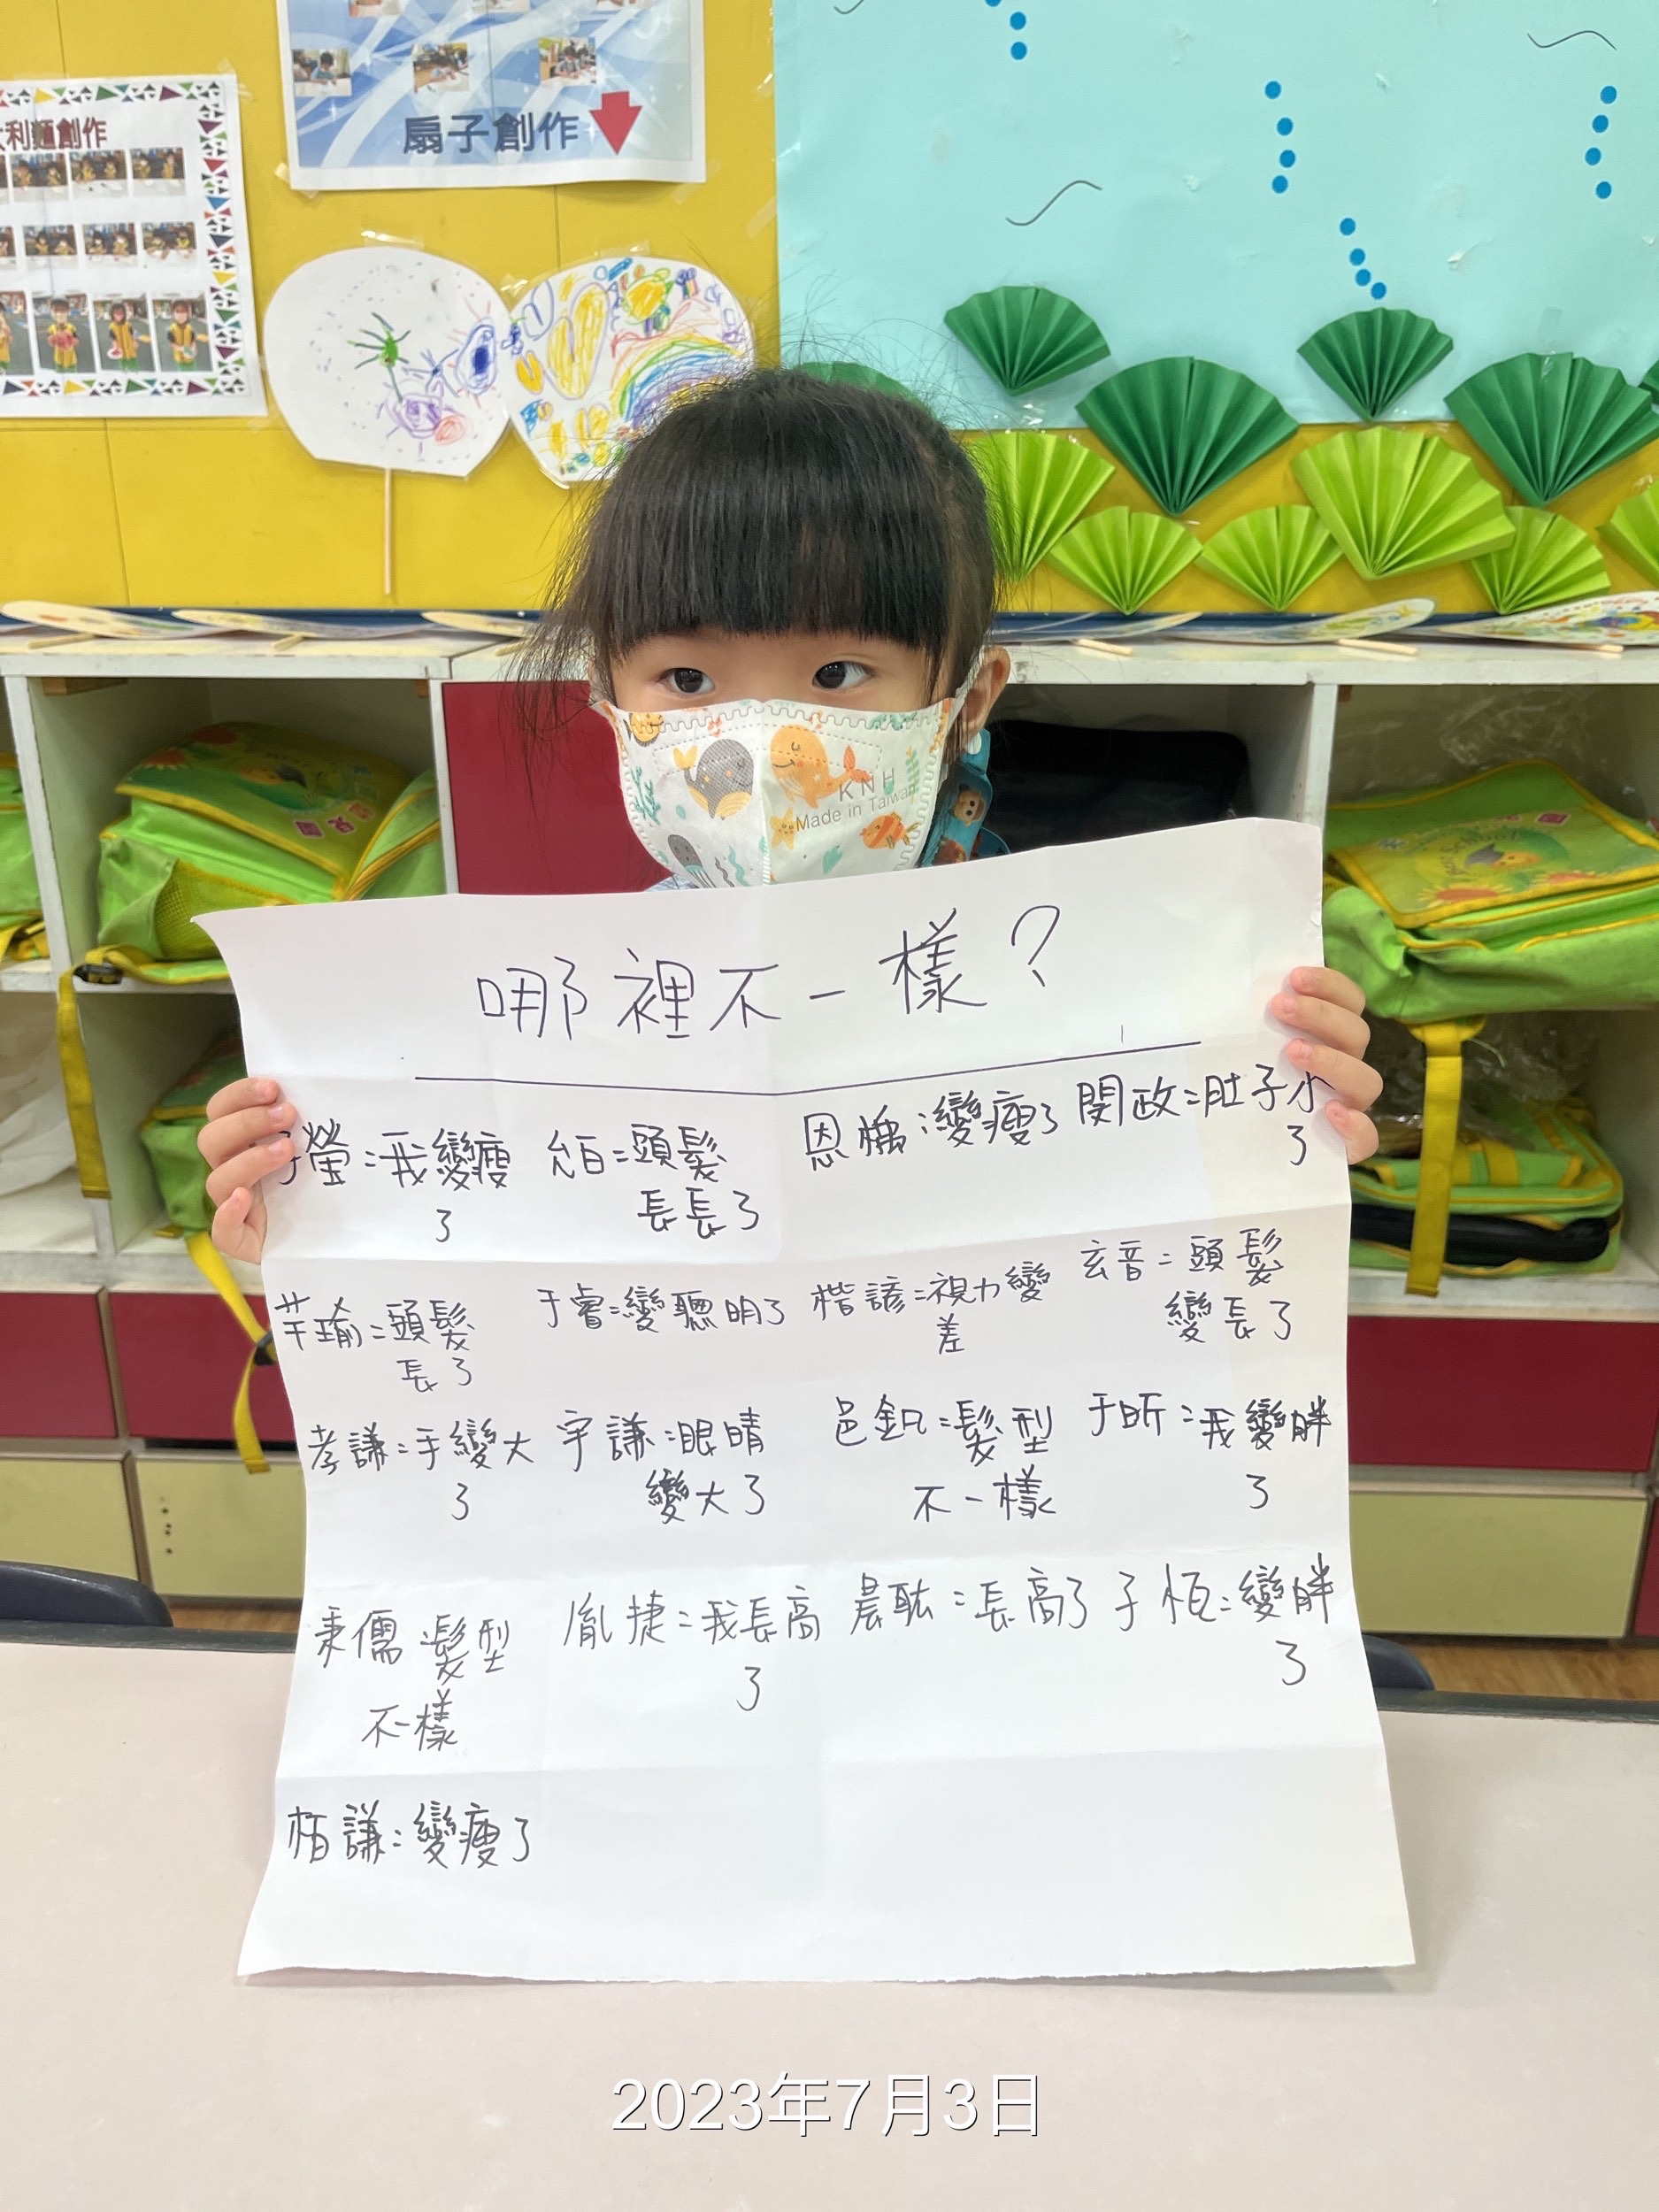 大利麵創作
扇子創作
KNH
Made in Taiwan
哪裡不一樣？
子瑩：我變瘦
了
允百：頭髮
長長了
恩僑：變瘦了
閔政：肚子小
了
芊瑜：頭髮
長了
于睿：變聰明了
楷諺：視力變
差
玄音：頭髮
變長了
孝謙：手變大
了
宇謙：眼睛
變大了
邑釩：髮型
不一樣
于昕：我變胖
了
秉儒：髮型
不一樣
胤捷：我長高
了
晨耘：長高了
子恆：變胖
了
栢謙：變瘦了
2023年7月3日